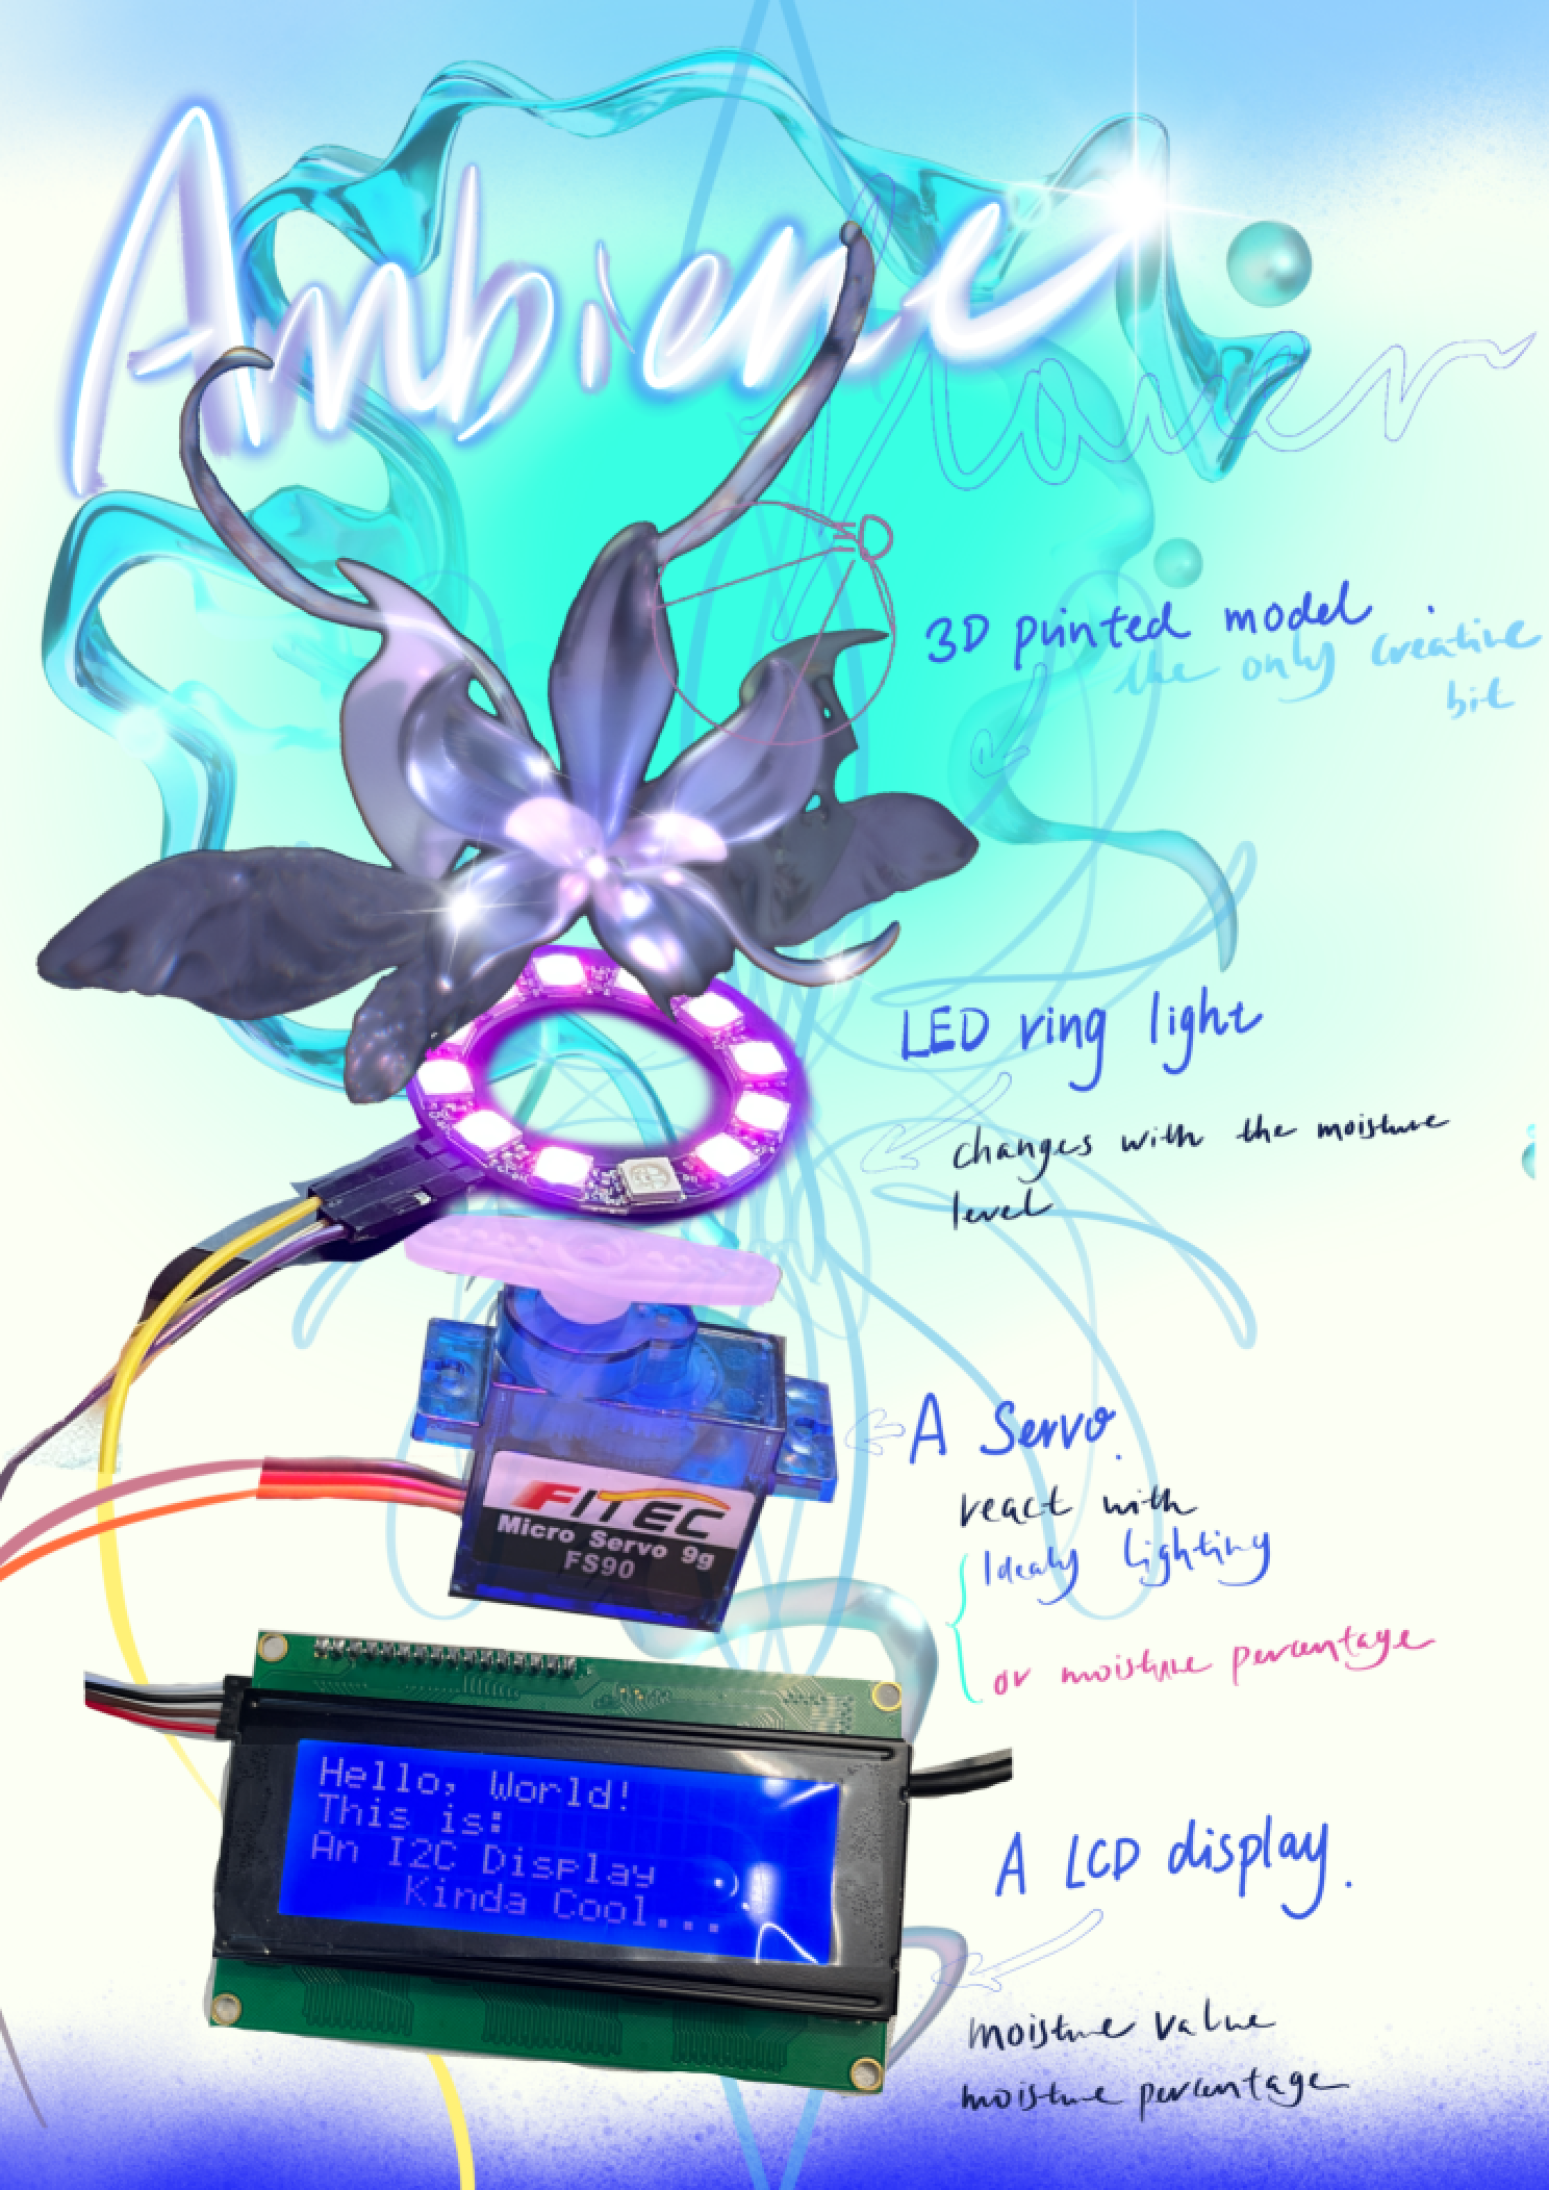 Ambience
flower
3D printed model
the only creative
bit
LED ring light
changes with the moisture
level
A Servo.
react with
Idealy lighting
or moisture percentage
FITEC
Micro Servo 9g
FS90
Hello, World!
This is:
An I2C Display
Kinda Cool...
A LCD display.
moisture value
moisture percentage